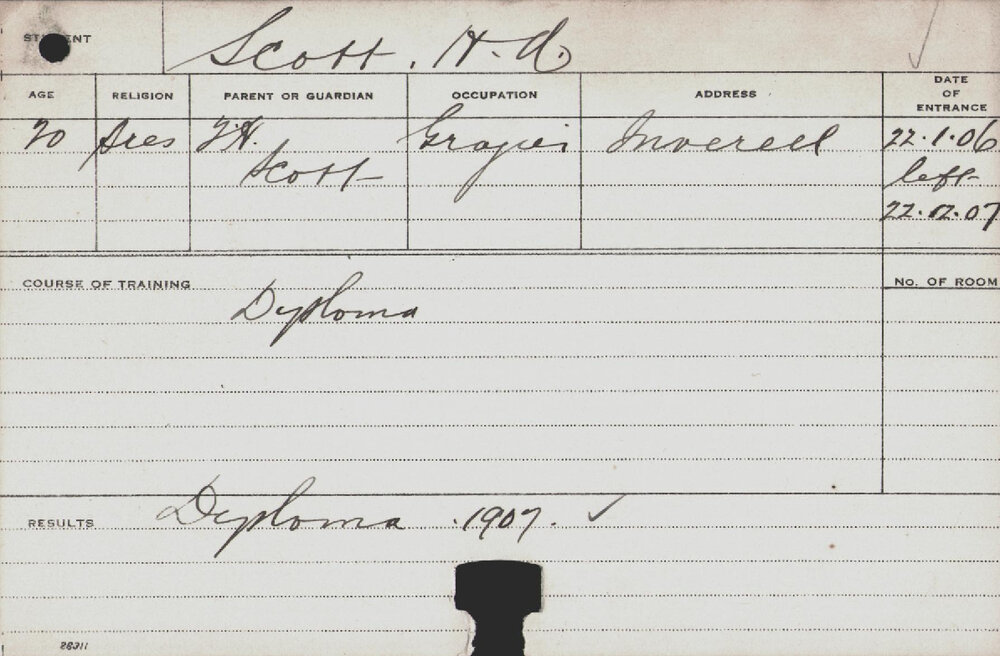 STUDENT Scott. H. A.
AGE RELIGION PARENT OR GUARDIAN OCCUPATION ADDRESS DATE OF ENTRANCE
20 Pres Grazier Inverell 22.1.06
Scott left
22.12.07
COURSE OF TRAINING No. OF ROOM
Dyploma
RESULTS Dyploma .1907. ✓
26311